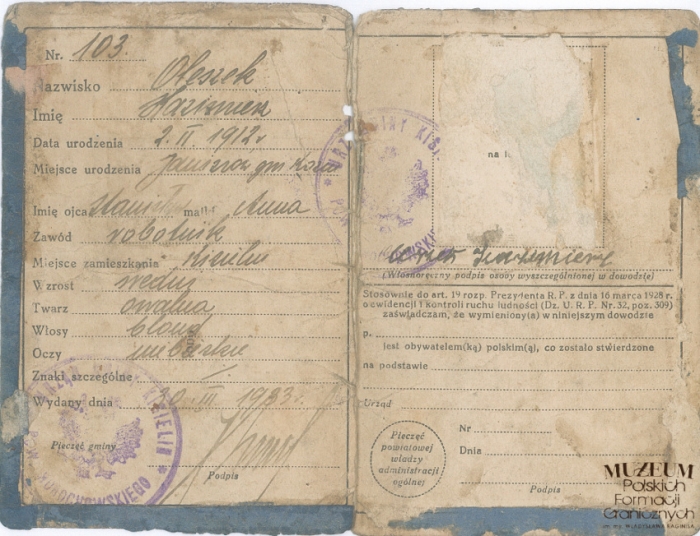 Nr. 103.
Nazwisko Oleszek
Imię Kazimierz
Data urodzenia 2. II 1912 r
Miejsce urodzenia
Imię ojca matki Anna
Zawód robotnik
Miejsce zamieszkania
Wzrost
Twarz owalna
Włosy blond
Oczy niebieskie
Znaki szczególne
Wydany dnia 30 III 1933
Pieczęć gminy
Podpis
KISIELIN
HOROCHOWSKIEGO
na
(Własnoręczny podpis osoby wyszczególnionej w dowodzie)
Stosownie do art. 19 rozp. Prezydenta R. P. z dnia 16 marca 1928 r.
o ewidencji i kontroli ruchu ludności (Dz. U. R. P. Nr. 32, poz. 309)
zaświadczam, że wymieniony(a) w niniejszym dowodzie
p.
jest obywatelem(ką) polskim(ą), co zostało stwierdzone
na podstawie
Urząd
Pieczęć
powiatowej
władzy
administracji
ogólnej
Nr
Dnia
Podpis
MUZEUM
Polskich
Formacji
Granicznych